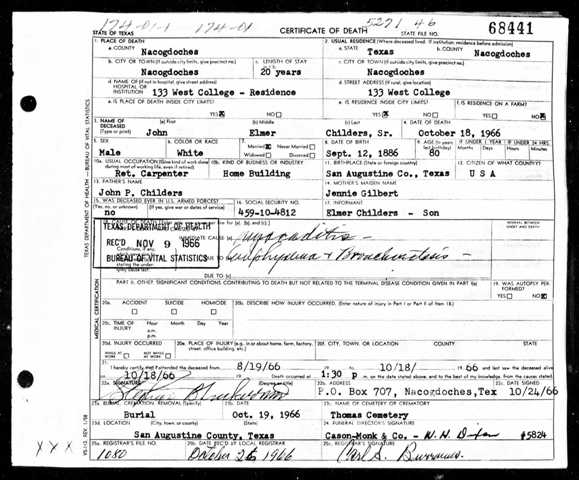 174-01-1 174-01 5271 46
STATE OF TEXAS CERTIFICATE OF DEATH STATE FILE NO. 68441
1. PLACE OF DEATH 2. USUAL RESIDENCE (Where deceased lived. If institution: residence before admission)
a. COUNTY Nacogdoches a. STATE Texas b. COUNTY Nacogdoches
b. CITY OR TOWN (If outside city limits, give precinct no.) c. LENGTH OF STAY c. CITY OR TOWN (If outside city limits, give precinct no.)
Nacogdoches 20 years Nacogdoches
d. NAME OF (If not in hospital, give street address) d. STREET ADDRESS (If rural, give location)
HOSPITAL OR INSTITUTION 133 West College - Residence 133 West College
e. IS PLACE OF DEATH INSIDE CITY LIMITS? e. IS RESIDENCE INSIDE CITY LIMITS? f. IS RESIDENCE ON A FARM?
YES X NO YES X NO YES NO X
3. NAME OF DECEASED (Type or print) (a) First (b) Middle (c) Last 4. DATE OF DEATH
John Elmer Childers, Sr. October 18, 1966
5. SEX 6. COLOR OR RACE 7. Married X Never Married 8. DATE OF BIRTH 9. AGE (In years last birthday) IF UNDER 1 YEAR IF UNDER 24 HRS.
Male White Widowed Divorced Sept. 12, 1886 80 Months Days Hours Minutes
10a. USUAL OCCUPATION (Give kind of work done 10b. KIND OF BUSINESS OR INDUSTRY 11. BIRTHPLACE (State or foreign country) 12. CITIZEN OF WHAT COUNTRY?
Ret. Carpenter Home Building San Augustine Co., Texas U S A
13. FATHER'S NAME 14. MOTHER'S MAIDEN NAME
John P. Childers Jennie Gilbert
15. WAS DECEASED EVER IN U.S. ARMED FORCES? 16. SOCIAL SECURITY NO. 17. INFORMANT
(Yes, no, or unknown) (If yes, give war or dates of service)
no 459-10-4812 Elmer Childers - Son
INTERVAL BETWEEN ONSET AND DEATH
TEXAS DEPARTMENT OF HEALTH
REC'D NOV 9 1966
BUREAU OF VITAL STATISTICS
IMMEDIATE CAUSE (a)
DUE TO (c)
PART II. OTHER SIGNIFICANT CONDITIONS CONTRIBUTING TO DEATH BUT NOT RELATED TO THE TERMINAL DISEASE CONDITION GIVEN IN PART I(a) 19. WAS AUTOPSY PERFORMED?
YES NO X
20a. ACCIDENT SUICIDE HOMICIDE 20b. DESCRIBE HOW INJURY OCCURRED. (Enter nature of injury in Part I or Part II of item 18.)
20c. TIME OF INJURY Hour a.m. p.m. Month Day Year
20d. INJURY OCCURRED 20e. PLACE OF INJURY (e.g. in or about home, farm, factory, street, office building, etc.) 20f. CITY, TOWN, OR LOCATION COUNTY STATE
WHILE AT WORK NOT WHILE AT WORK
21. I hereby certify that I attended the deceased from 8/19/66 to 10/18/ 1966 and last saw the deceased alive
on 10/18/66 Death occurred at 1:30 p m. on the date stated above, and to the best of my knowledge, from the causes stated
22a. SIGNATURE (Degree or title) 22b. ADDRESS 22c. DATE SIGNED
P.O. Box 707, Nacogdoches,Tex 10/24/66
23a. BURIAL, CREMATION, REMOVAL (Specify) 23b. DATE 23c. NAME OF CEMETERY OR CREMATORY
Burial Oct. 19, 1966 Thomas Cemetery
23d. LOCATION (City, town, or county) (State) 24. FUNERAL DIRECTOR'S SIGNATURE
San Augustine County, Texas Cason-Monk & Co. - #5824
25a. REGISTRAR'S FILE NO. 25b. DATE REC'D BY LOCAL REGISTRAR 25c. REGISTRAR'S SIGNATURE
1080 October 26 1966 Carl S.
TEXAS DEPARTMENT OF HEALTH—BUREAU OF VITAL STATISTICS
MEDICAL CERTIFICATION
XXX